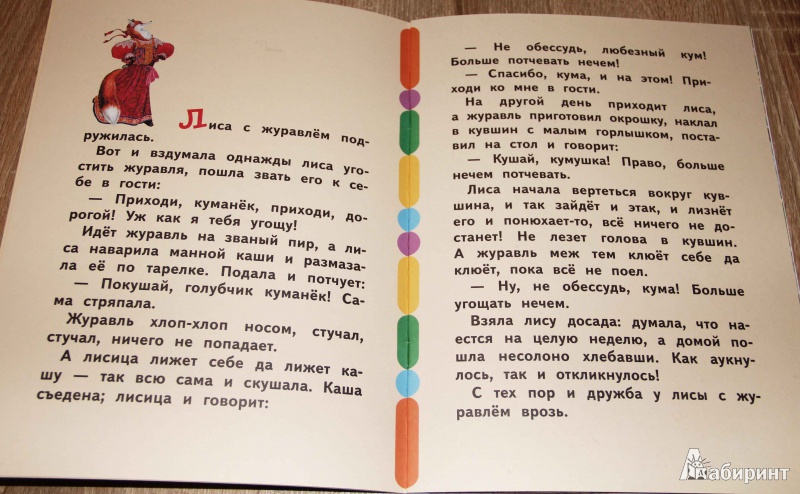 Лиса с журавлём под-
ружилась.
Вот и вздумала однажды лиса уго-
стить журавля, пошла звать его к се-
бе в гости:
— Приходи, куманёк, приходи, до-
рогой! Уж как я тебя угощу!
Идёт журавль на званый пир, а ли-
са наварила манной каши и размаза-
ла её по тарелке. Подала и потчует:
— Покушай, голубчик куманёк! Са-
ма стряпала.
Журавль хлоп-хлоп носом, стучал,
стучал, ничего не попадает.
А лисица лижет себе да лижет ка-
шу — так всю сама и скушала. Каша
съедена; лисица и говорит:
— Не обессудь, любезный кум!
Больше потчевать нечем!
— Спасибо, кума, и на этом! При-
ходи ко мне в гости.
На другой день приходит лиса,
а журавль приготовил окрошку, наклал
в кувшин с малым горлышком, поста-
вил на стол и говорит:
— Кушай, кумушка! Право, больше
нечем потчевать.
Лиса начала вертеться вокруг кув-
шина, и так зайдёт и этак, и лизнёт
его и понюхает-то, всё ничего не до-
станет! Не лезет голова в кувшин.
А журавль меж тем клюёт себе да
клюёт, пока всё не поел.
— Ну, не обессудь, кума! Больше
угощать нечем.
Взяла лису досада: думала, что на-
естся на целую неделю, а домой по-
шла несолоно хлебавши. Как аукну-
лось, так и откликнулось!
С тех пор и дружба у лисы с жу-
равлём врозь.
Лабиринт